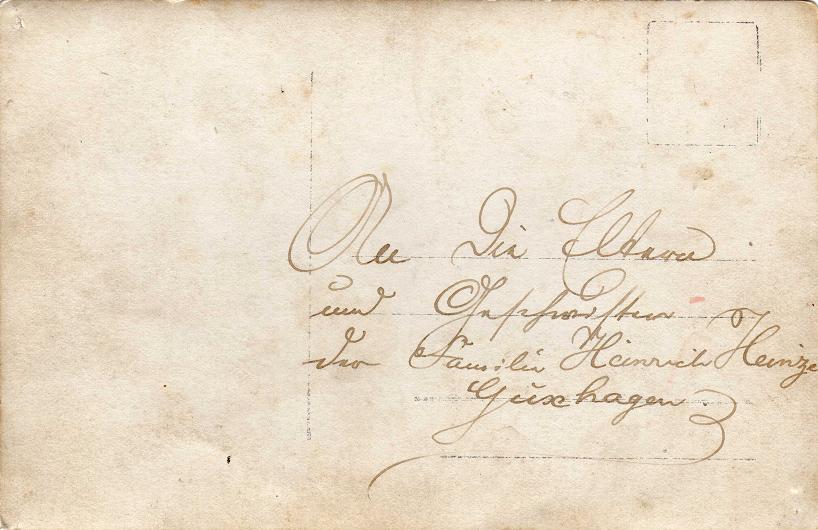 An Die Eltern
und Geschwister
der Familie Heinrich Heinze
Guxhagen